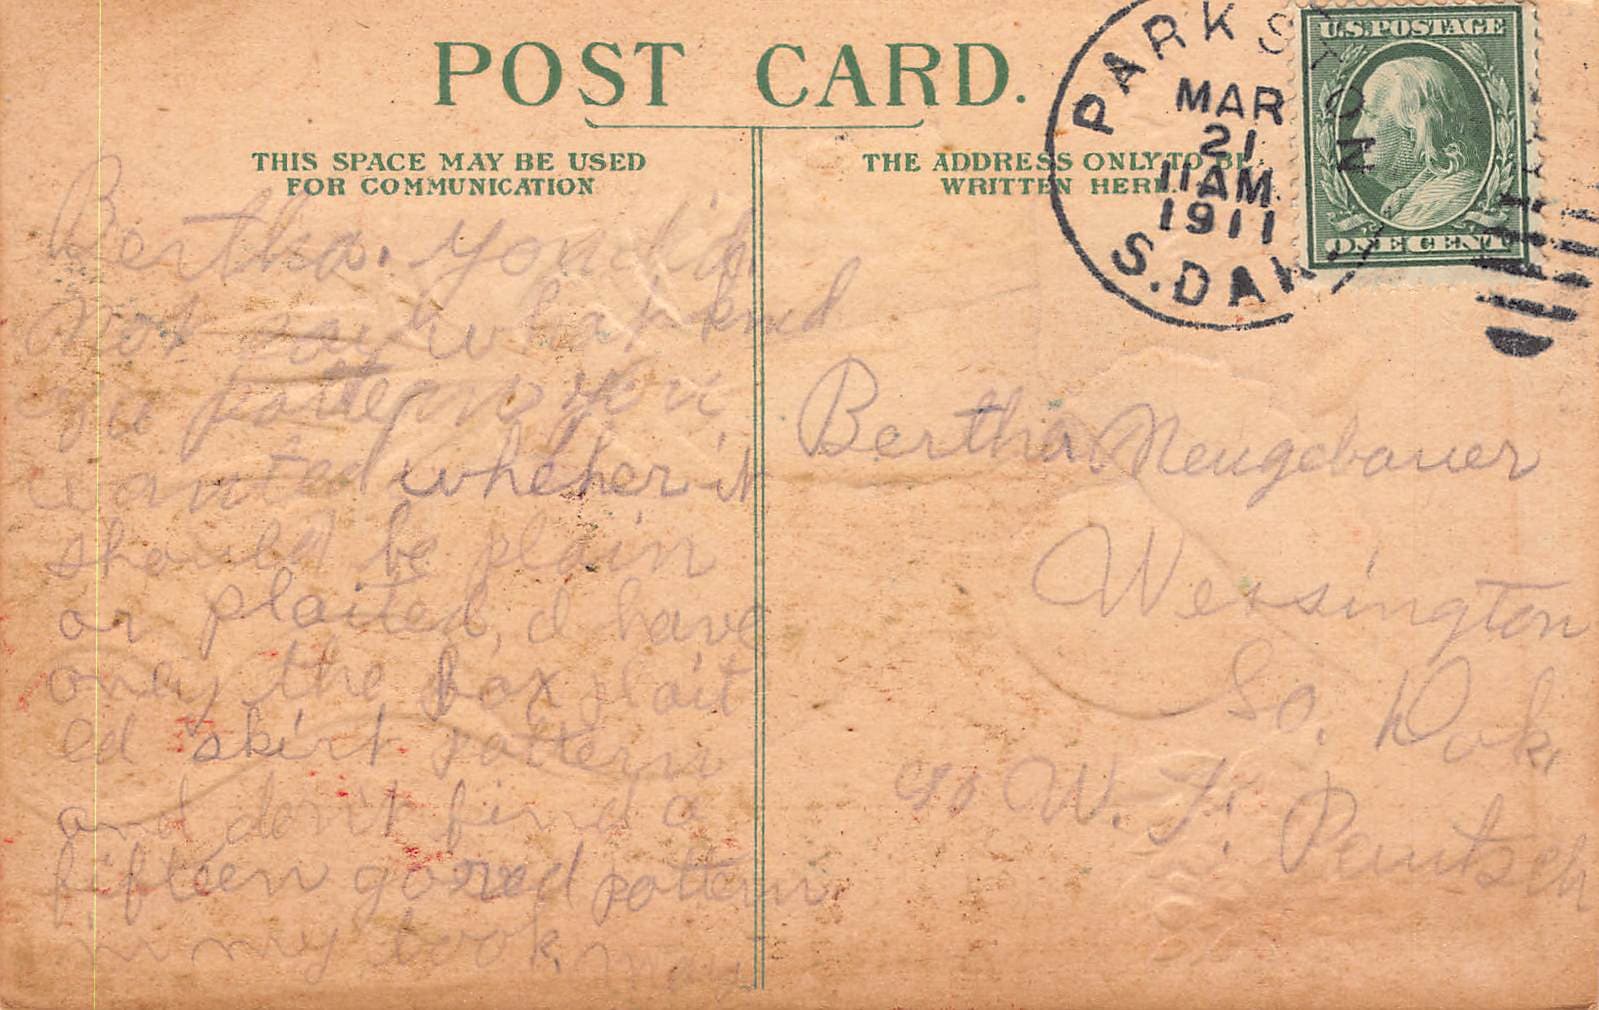 POST CARD.
THIS SPACE MAY BE USED
FOR COMMUNICATION
THE ADDRESS ONLY TO BE
WRITTEN HERE.
PARKSTON
MAR
21
11 AM
1911
S. DAK
U.S. POSTAGE
ONE CENT
Bertha. You did
not say what kind
of a pattern you
wanted whether it
should be plain
or plaited, I have
only the box plait
ed skirt pattern
and don't find a
fifteen gored pattern
in my book. May
Bertha Neugebauer
Wessington
So. Dak.
W. F. Pentsch